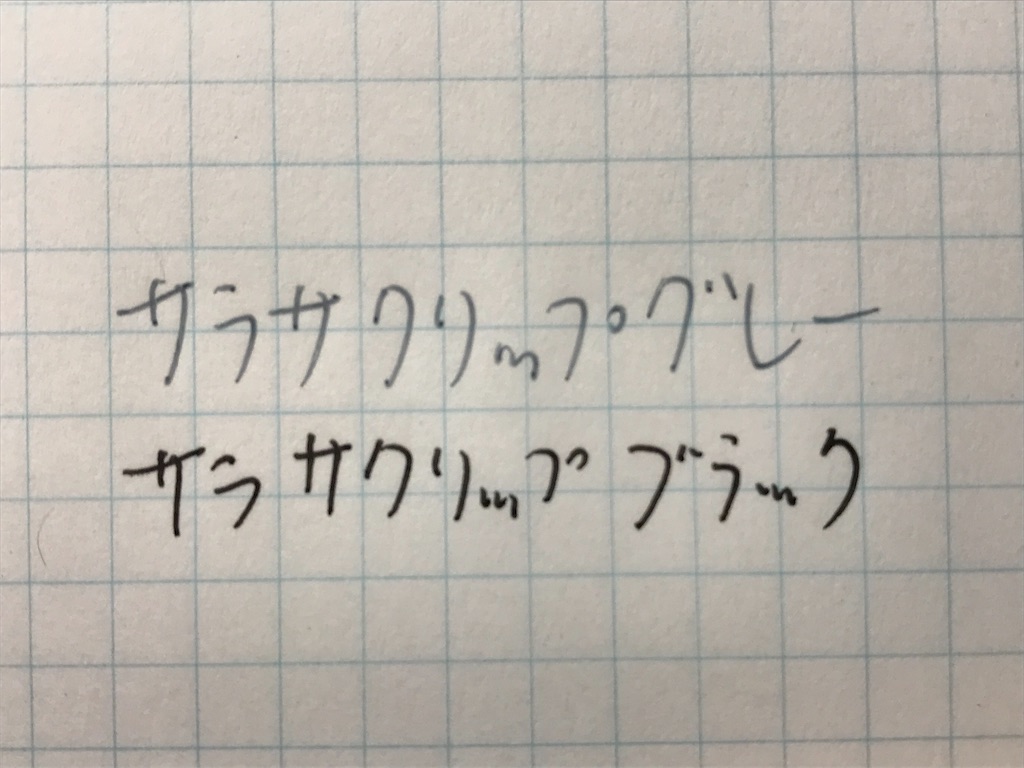 サラサクリップグレー
サラサクリップ ブラック